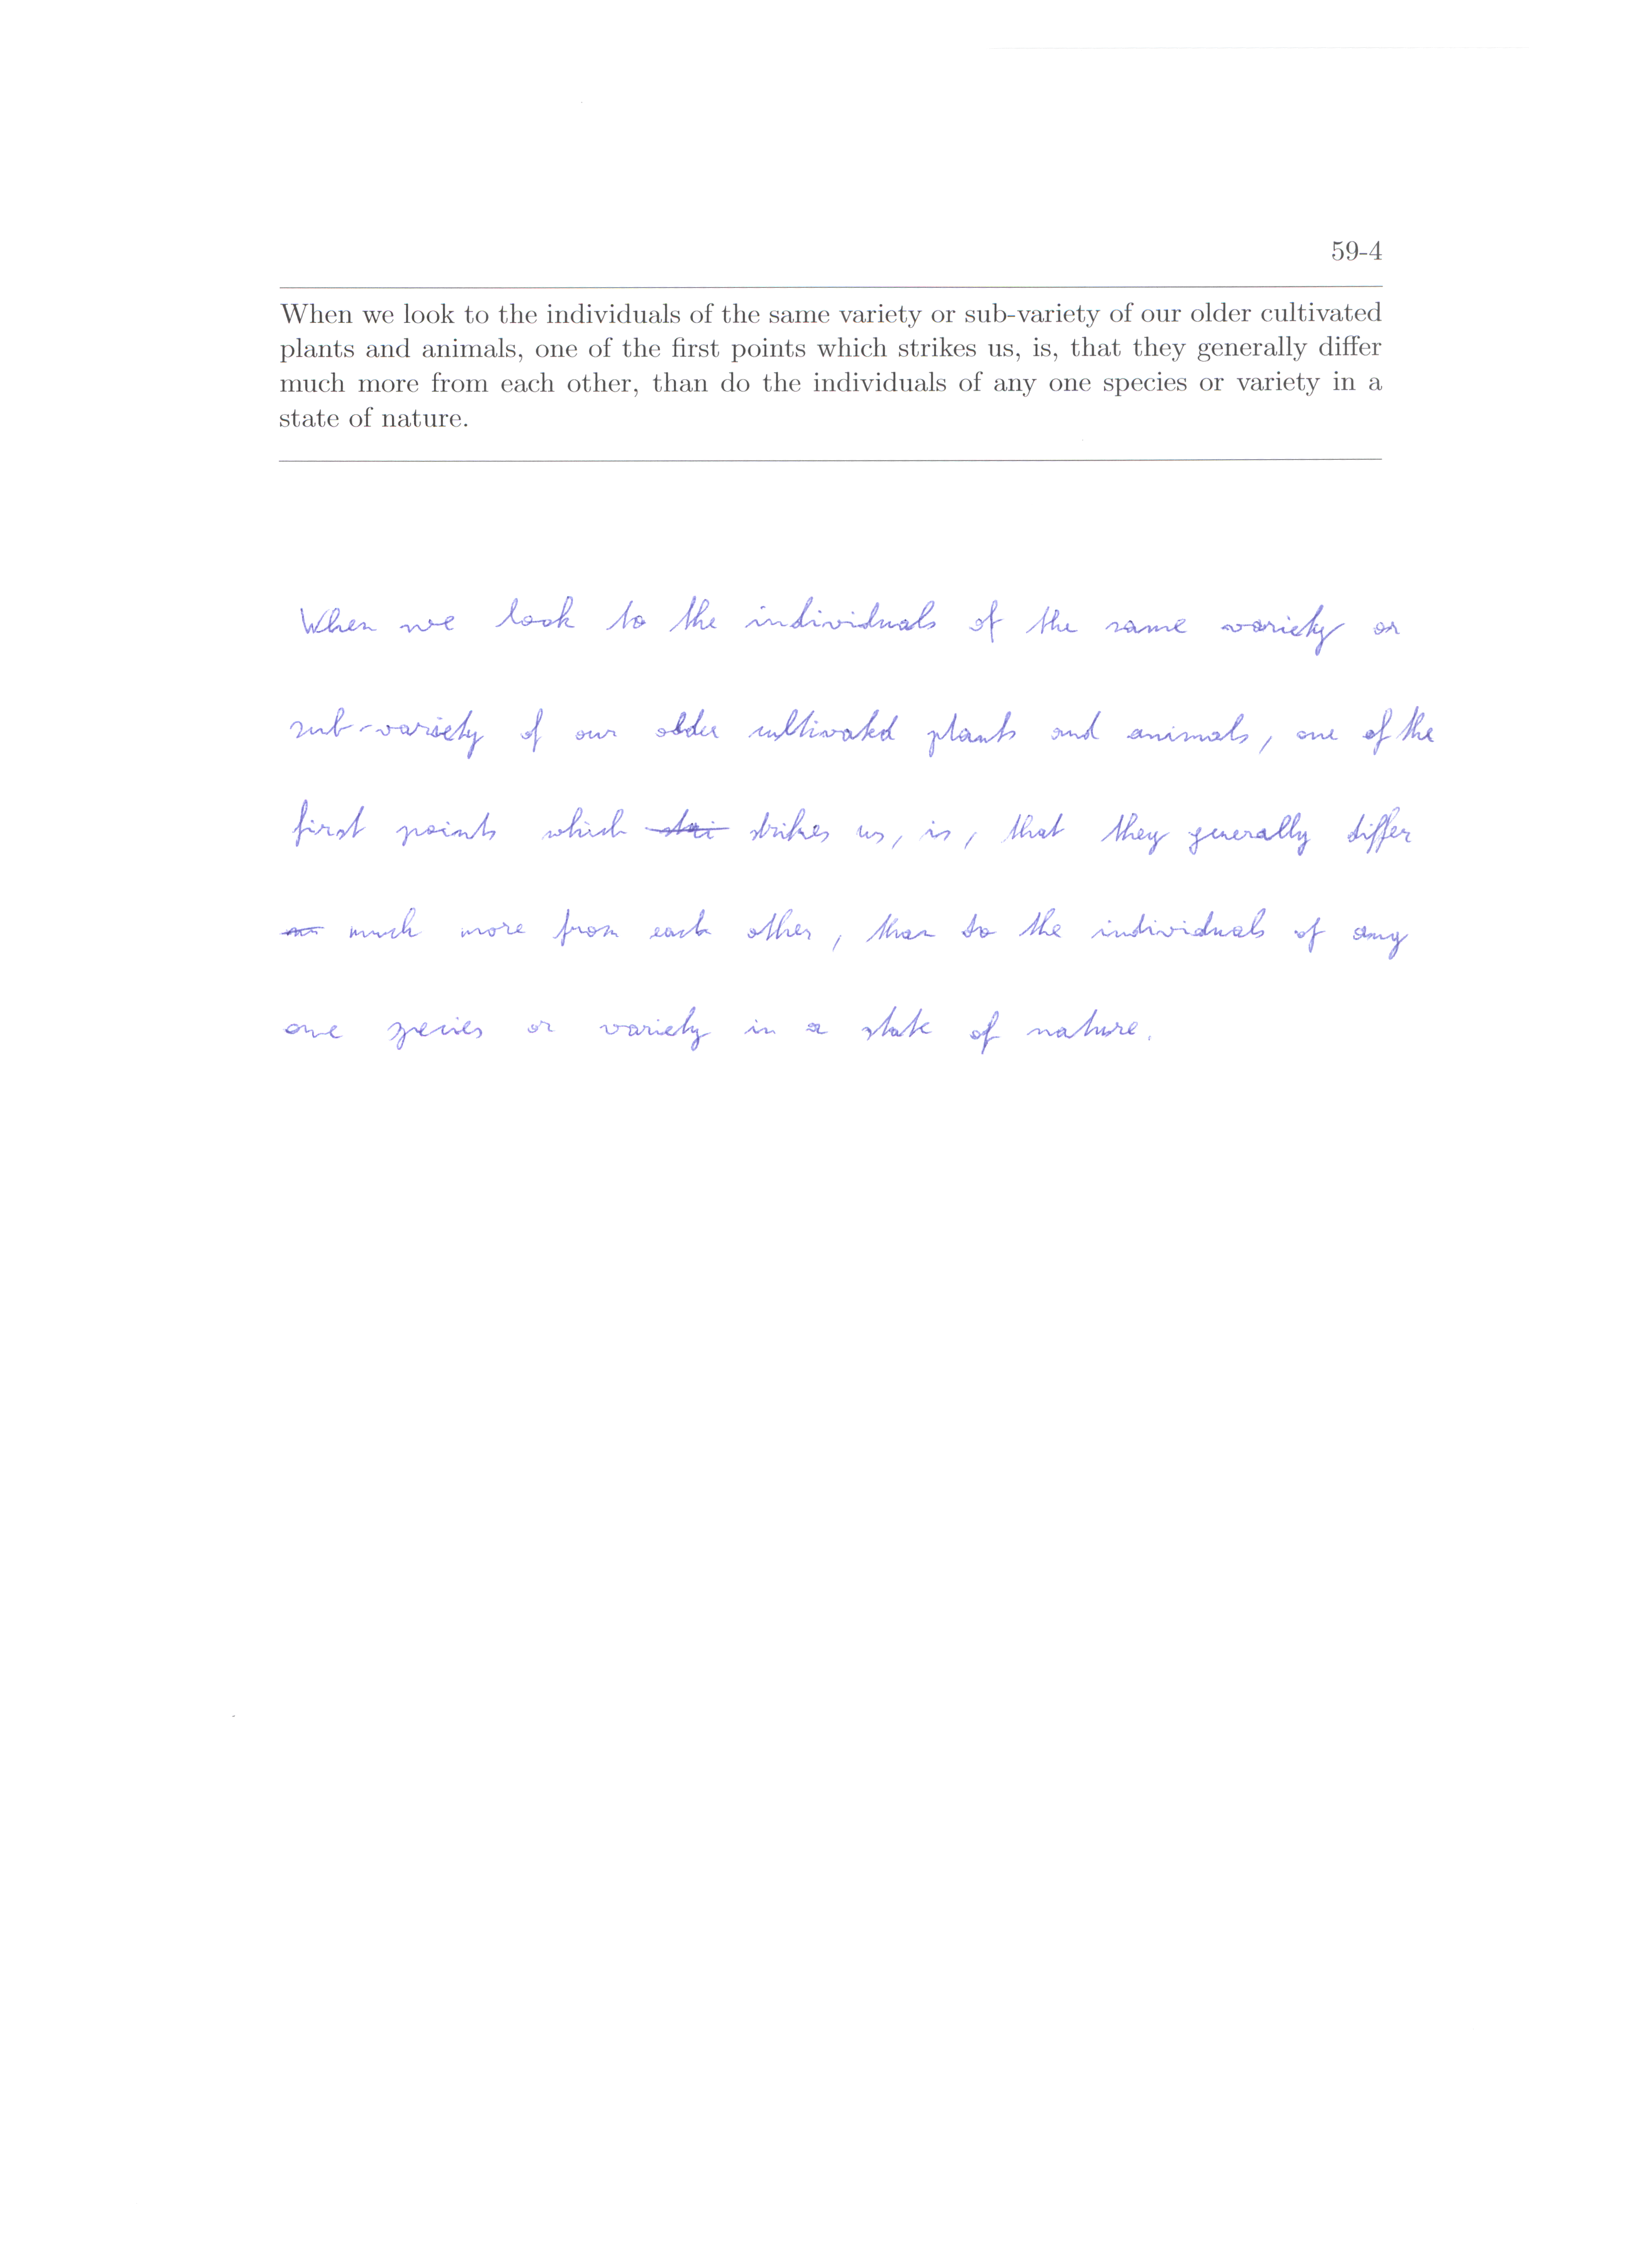 59-4
When we look to the individuals of the same variety or sub-variety of our older cultivated
plants and animals, one of the first points which strikes us, is, that they generally differ
much more from each other, than do the individuals of any one species or variety in a
state of nature.
When we look to the individuals of the same variety or
sub-variety of our older cultivated plants and animals, one of the
first points which strikes us, is, that they generally differ
much more from each other, than do the individuals of any
one species or variety in a state of nature.